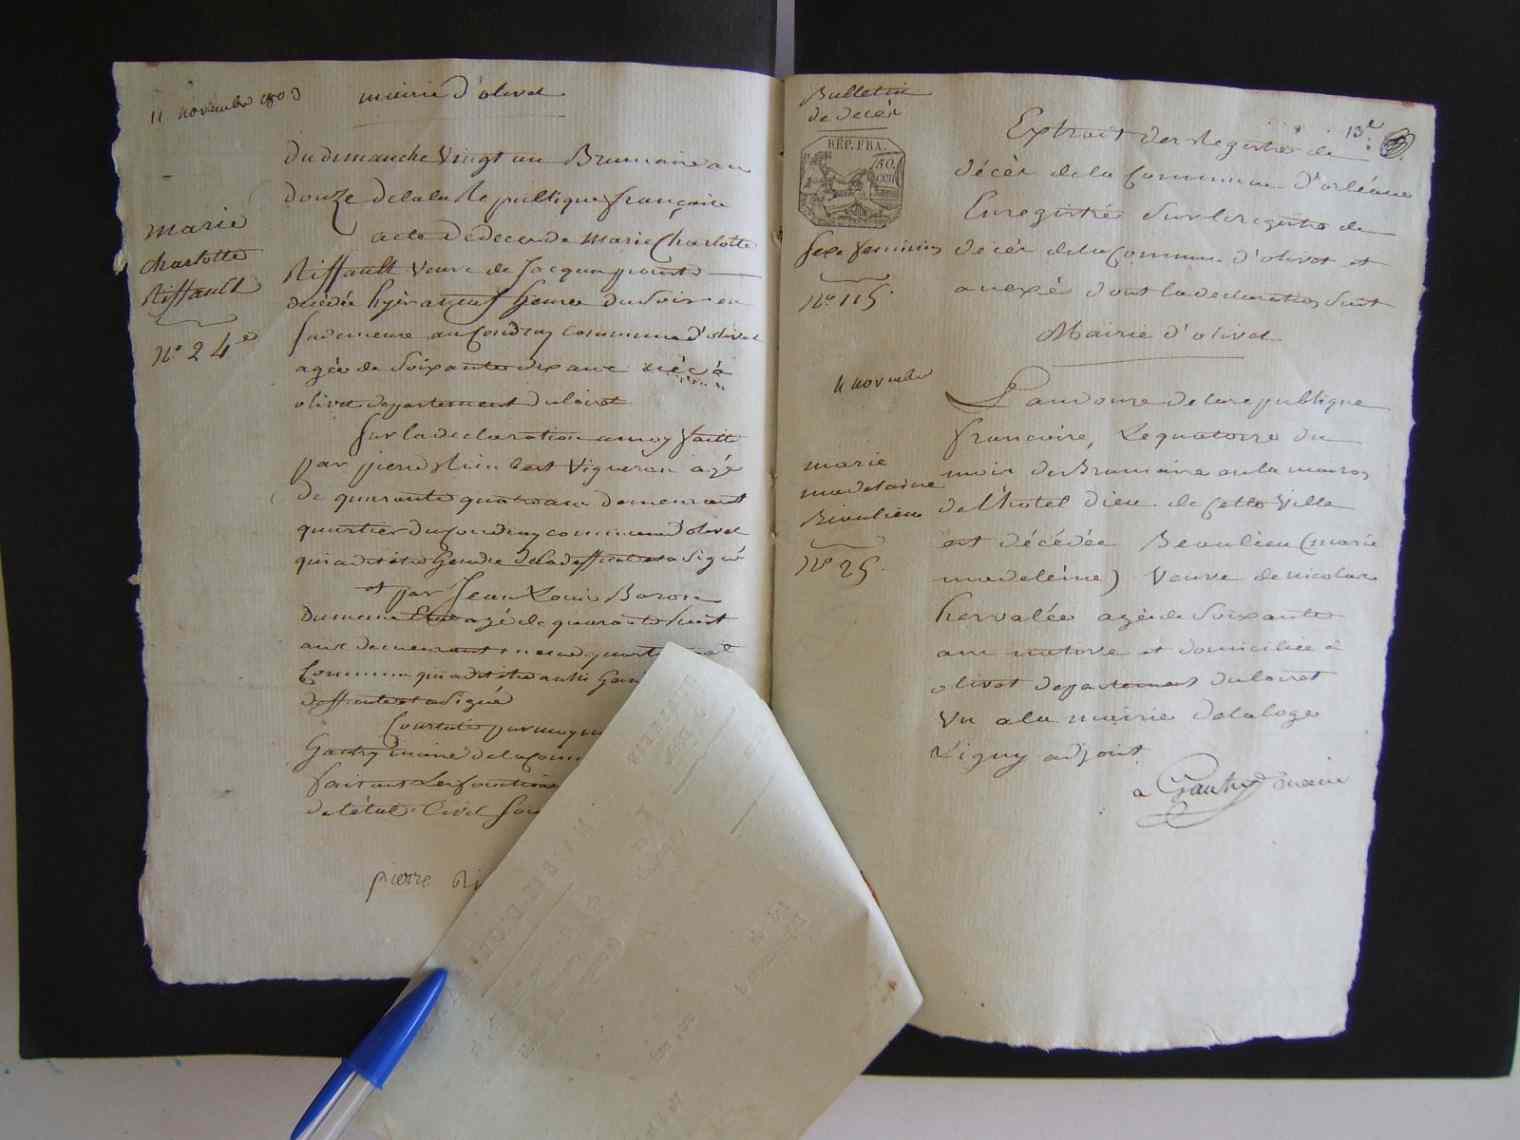 11 novembre 1803
mairie d'olivet
du dimanche Vingt un Brumaire an
douze de la Republique française
acte de deces de Marie Charlotte
Riffault Veuve de Jacque
decedée hyer a neuf heures du Soir en
sa demeure au Coudray commune d'olivet
agée de Soixante dix ans néé à
olivet departement du loiret
Sur la declaration a moy faitte
par pierre Vigneron agé
de quarante quatre ans demeurant
quartier du Coudray commune d'olivet
qui a dit être Gendre de la deffunte et a Signé
et par Jean Louis Baron
du meme Etat agé de quarante huit
ans demeurant meme
Commune qui a dit être aussi
deffunte et a Signé
Constaté par moy
Gautry maire de la Com
faisant Les fonctions
de l'état Civil
pierre
marie
charlotte
Riffault
No 24e
Bulletin
de décès
RÉP. FRA.
50
cen
Sexe feminin
No 115.
11 novembre
marie
madelaine
Beaulieu
No 25.
13e
Extrait des Registres de
décès de la Commune d'orléans
Enregistrée Sur le registre de
décès de la Commune d'olivet et
anexé dont la declaration Suit
Mairie d'olivet
L'an douze de la republique
francaise, Le quatorze du
mois de Brumaire en la maison
de l'hotel dieu de Cette Ville
est décédée Beaulieu (marie
madeleine) Veuve de nicolas
hervalée agée de Soixante
ans et domiciliée à
olivet departement du loiret
Vu a la mairie
Vigny adjoint
Gautry maire